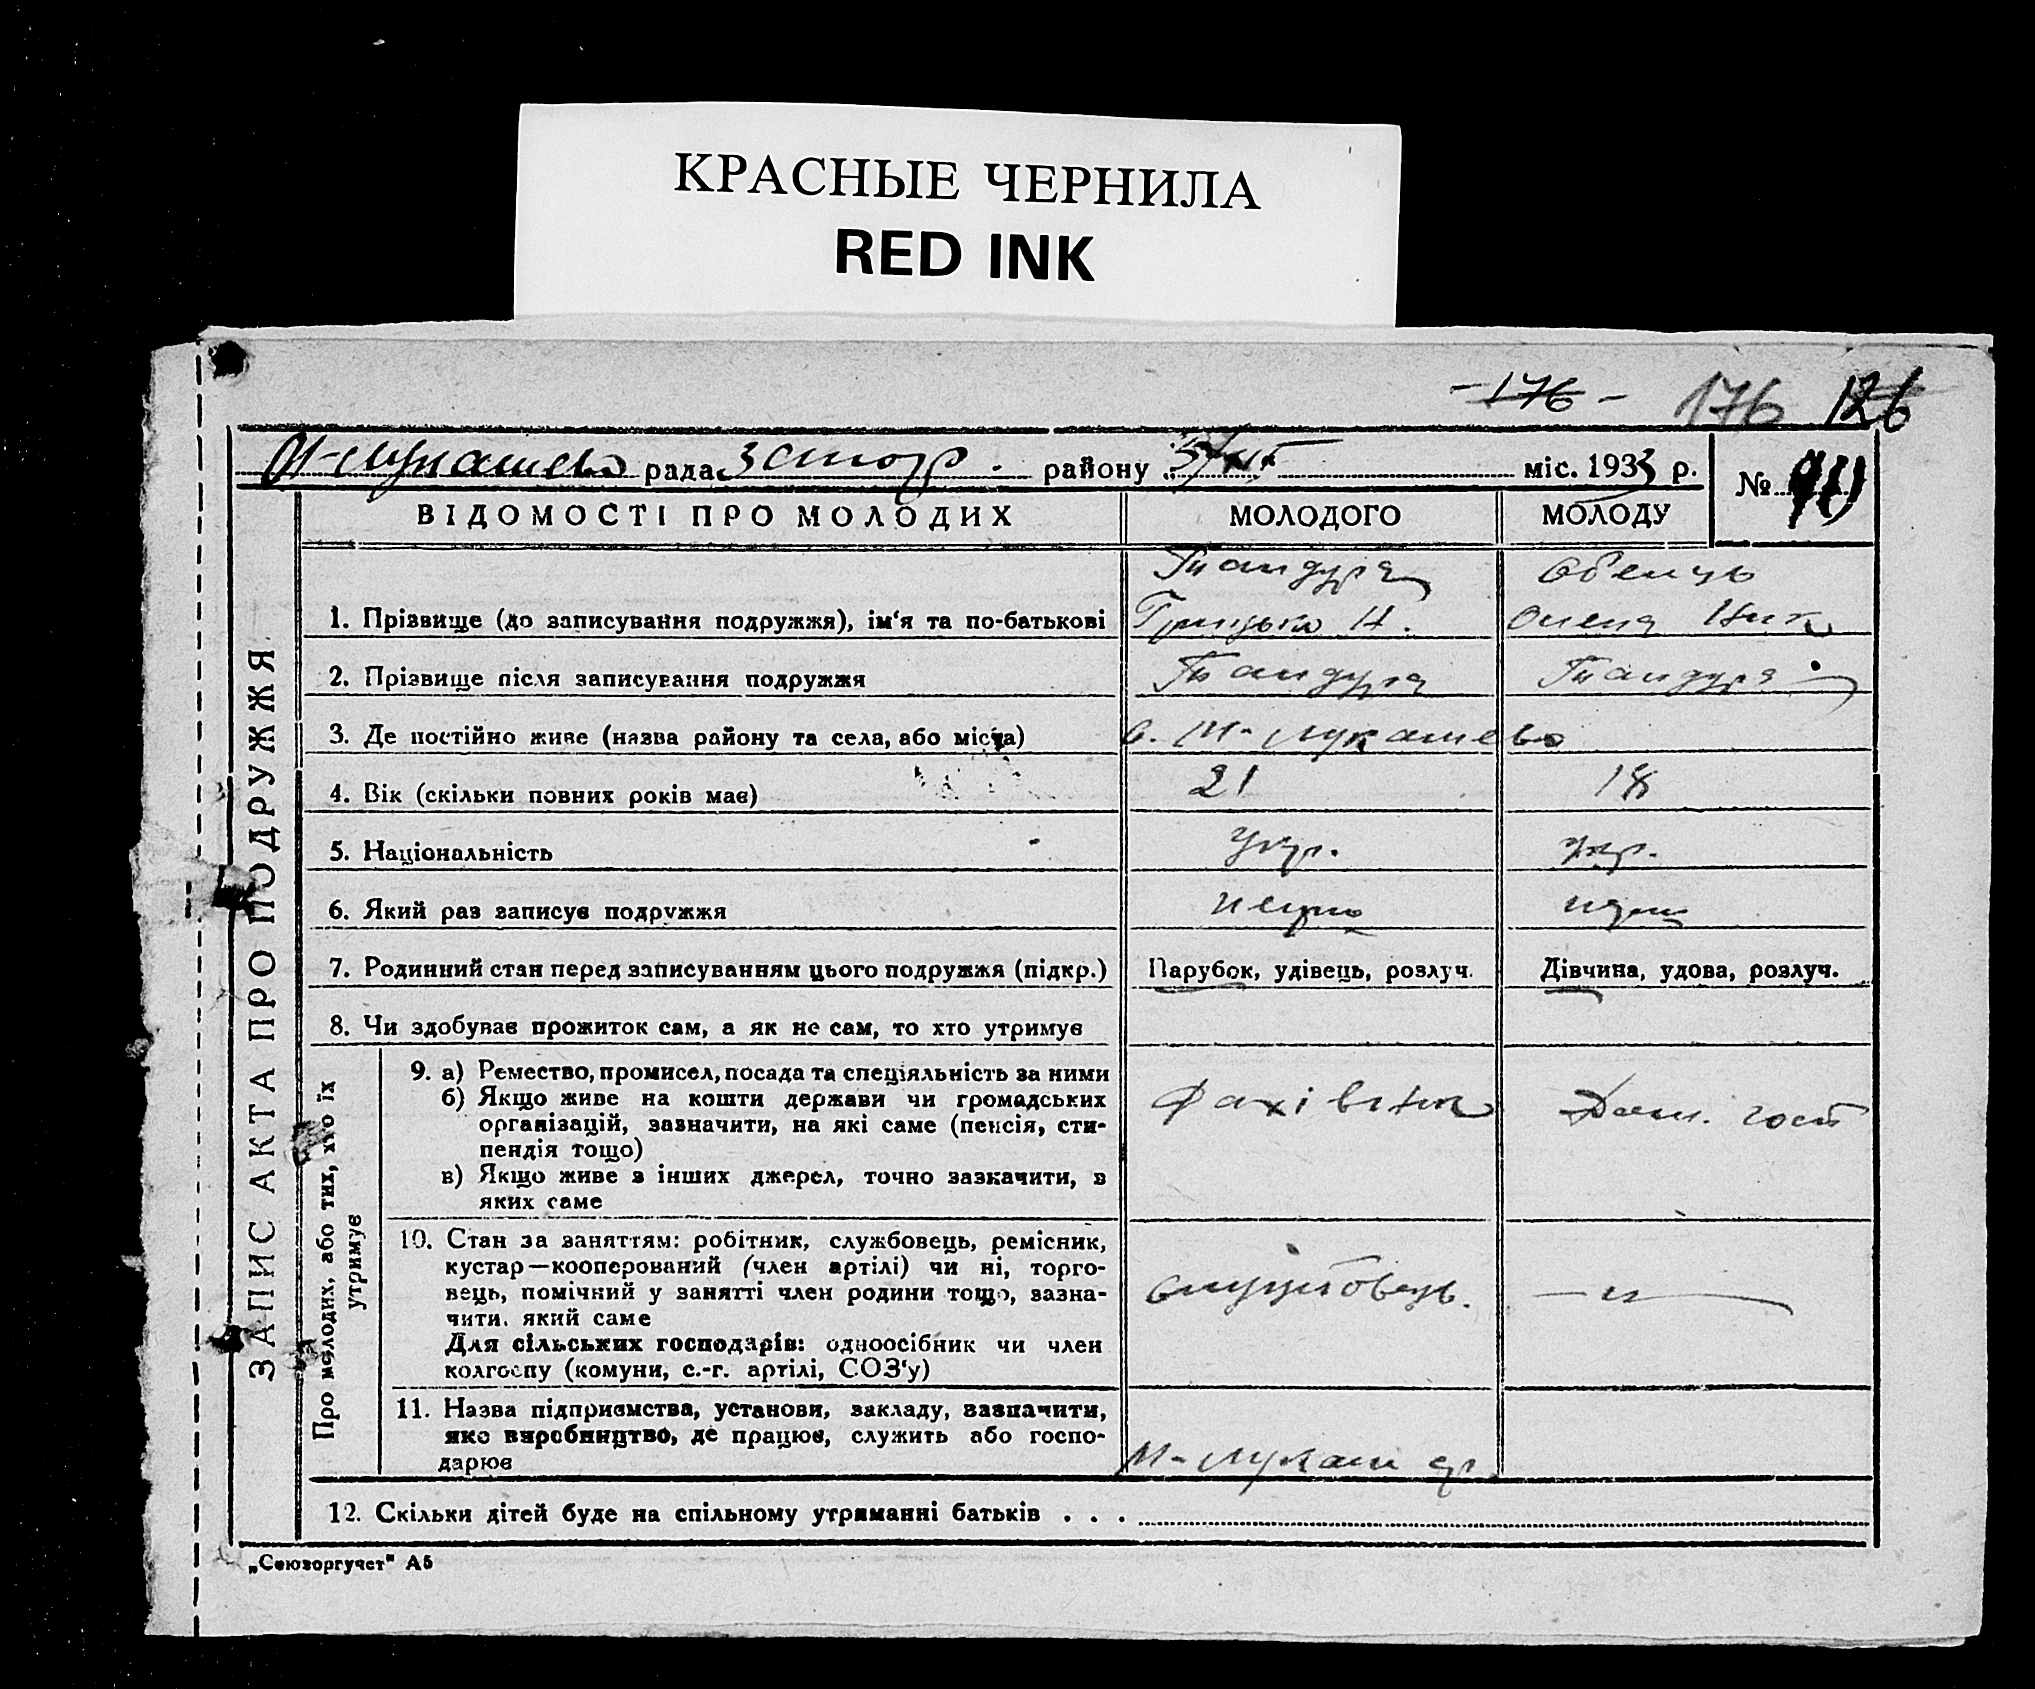 КРАСНЫЕ ЧЕРНИЛА
RED INK
-176- 176 126
М-Лукашево рада району міс. 1933 р. №
ВІДОМОСТІ ПРО МОЛОДИХ МОЛОДОГО МОЛОДУ
ЗАПИС АКТА ПРО ПОДРУЖЖЯ
Тандура
1. Прізвище (до записування подружжя), ім'я та по-батькові Грицько Н. Олена
2. Прізвище після записування подружжя Тандура Тандура
3. Де постійно живе (назва району та села, або міста) с. М-Лукашево
4. Вік (скільки повних років має) 21 18
5. Національність укр. укр.
6. Який раз записує подружжя
7. Родинний стан перед записуванням цього подружжя (підкр.) Парубок, удівець, розлуч. Дівчина, удова, розлуч.
8. Чи здобуває прожиток сам, а як не сам, то хто утримує
Про молодих, або тих, хто їх
утримує
9. а) Ремество, промисел, посада та спеціяльність за ними
б) Якщо живе на кошти держави чи громадських Дом. госп
організацій, зазначити, на які саме (пенсія, сти-
пендія тощо)
в) Якщо живе з інших джерел, точно зазначити, з
яких саме
10. Стан за заняттям: робітник, службовець, ремісник,
кустар—кооперований (член артілі) чи ні, торго-
вець, помічний у занятті член родини тощо, зазна- службовець.
чити, який саме
Для сільських господарів: одноосібник чи член
колгоспу (комуни, с.-г. артілі, СОЗ'у)
11. Назва підприємства, установи, закладу, зазначити,
яке виробництво, де працює, служить або госпо-
дарює М-Лукаш
12. Скільки дітей буде на спільному утриманні батьків . . .
„Союзоргучет" А5